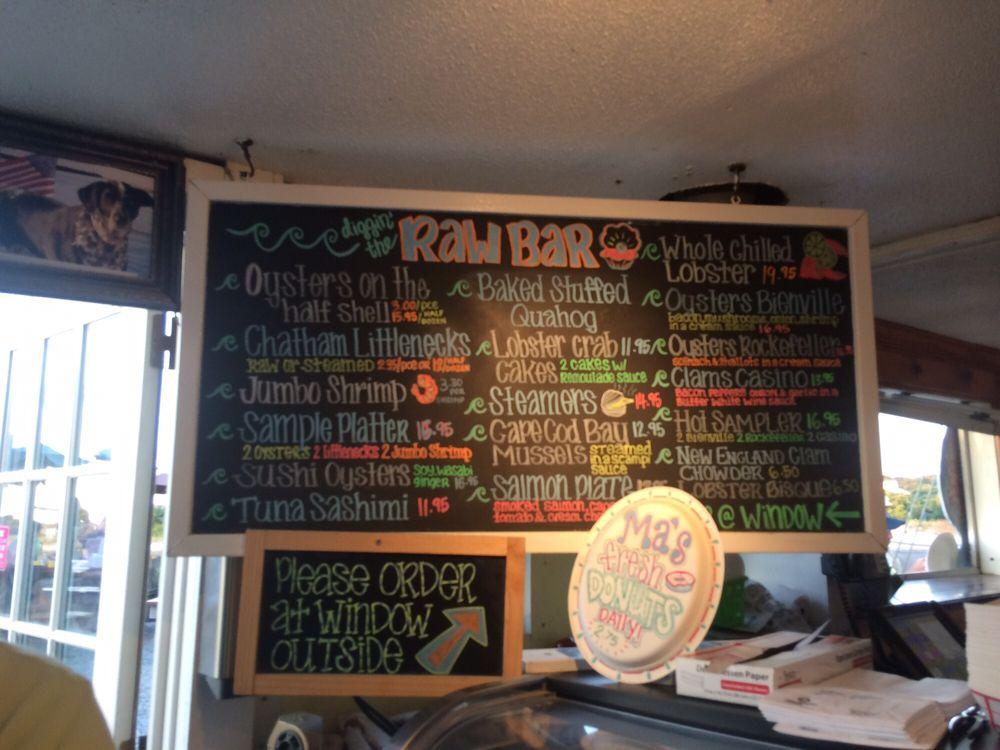 diggin' the RAW BAR
Oysters on the half Shell 3.00/pce 15.95/HALF DOZEN
Chatham Littlenecks
RAW or STEAMED
Jumbo Shrimp
Sample Platter
2 OYSTERS 2 Littlenecks 2 Jumbo Shrimp
Sushi Oysters soy, wasabi ginger
Tuna Sashimi 11.95
Baked Stuffed
Quahog
Lobster Crab 11.95
Cakes 2 CAKES W/ Remoulade sauce
Steamers 14.95
Cape Cod Bay 12.95
Mussels steamed in a scampi sauce
Salmon Plate
smoked salmon,
tomato &
Whole Chilled
Lobster 19.95
Oysters Bienville
bacon, mushrooms, onion, shrimp
in a cream sauce 16.95
Oysters Rockefeller
spinach & shallots in a cream sauce
Clams Casino 13.95
Bacon peppers onion & garlic in a
Butter white wine sauce
Hot SAMPLER 16.95
2 Bienville 2 Rockefeller 2 Casino
New England Clam
Chowder 6.50
Lobster Bisque 6.50
@ WINDOW
Please ORDER
at WINDOW
OUTSIDE
Ma's
fresh
DONUTS
DAILY!
2.75
essen Paper